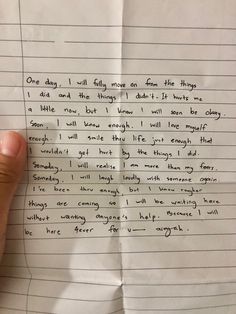 One day, I will fully move on from the things
I did and the things I didn't. It hurts me
a little now, but I know I will soon be okay.
Soon, I will know enough. I will love myself
enough. I will smile thru life just enough that
I wouldn't get hurt by the things I did.
Someday, I will realize I am more than my fears.
Someday, I will laugh loudly with someone again.
I've been thru enough, but I know rougher
things are coming so I will be waiting here
without wanting anyone's help. Because I will
be here 4ever for